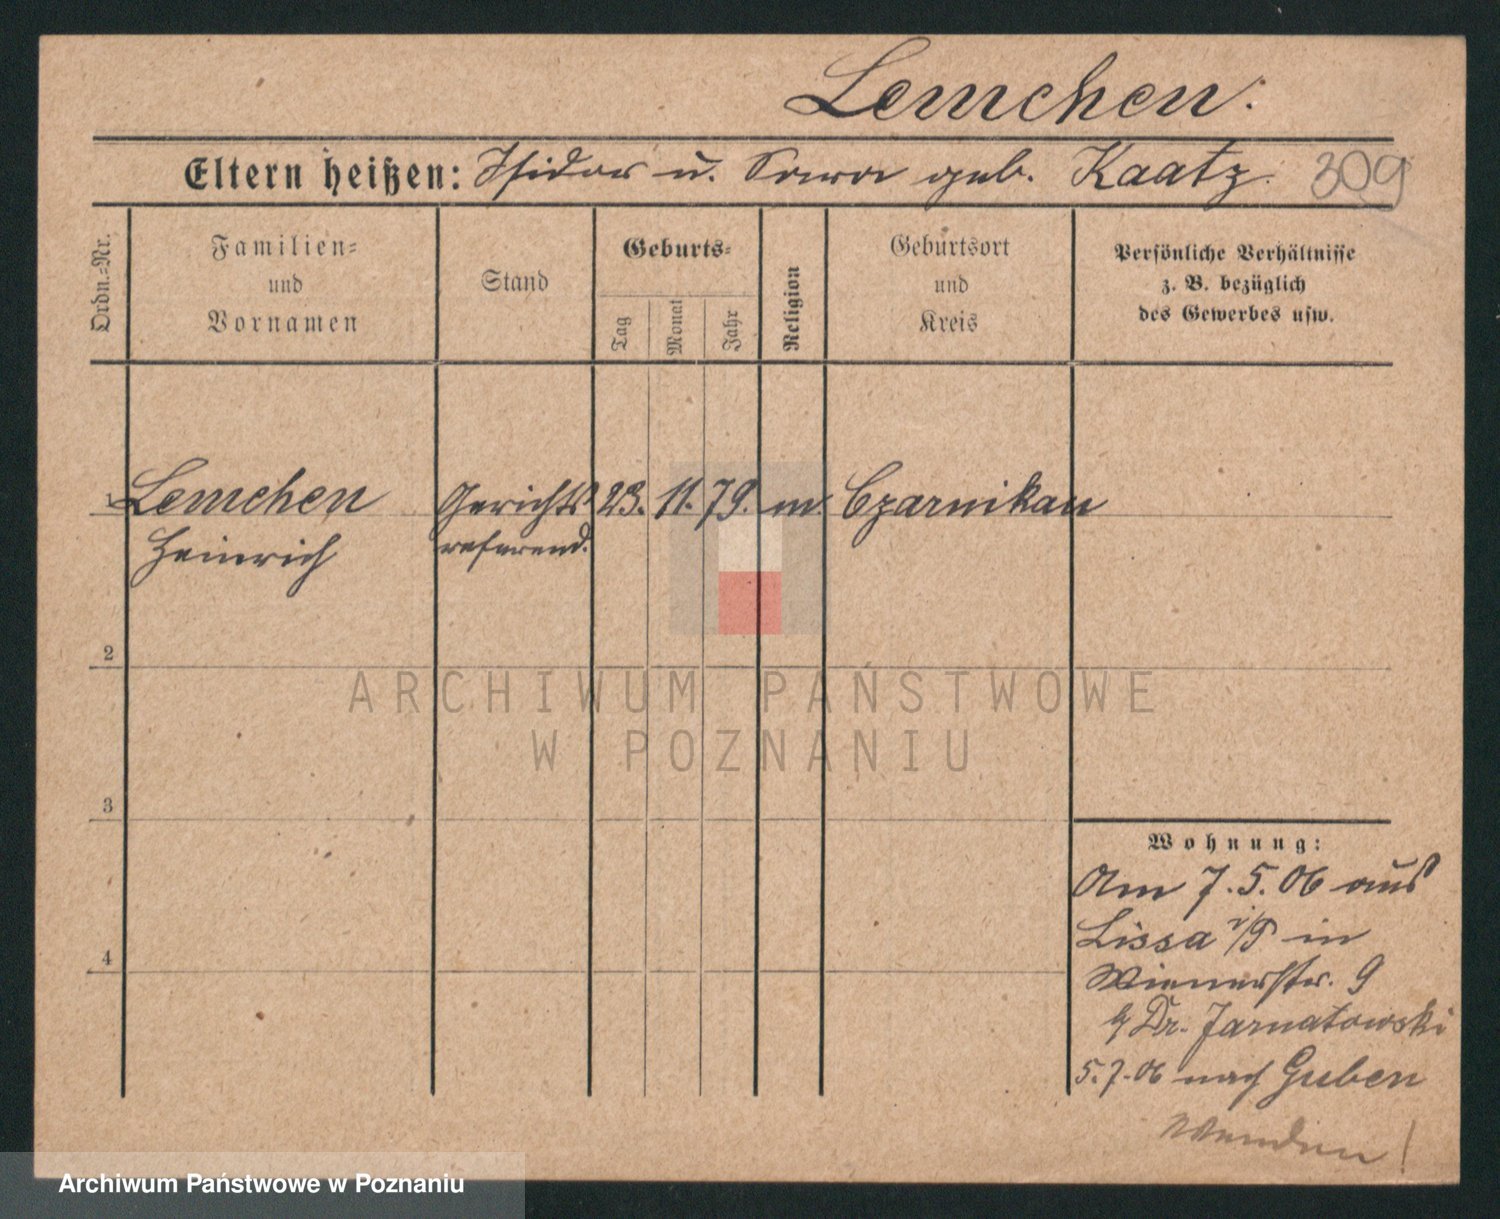 Lemchen.
Eltern heißen: Isidor u. Sara geb. Kaatz. 309
Ordn.=Nr.
Familien=
und
Vornamen
Stand
Geburts=
Tag
Monat
Jahr
Religion
Geburtsort
und
Kreis
Persönliche Verhältnisse
z. B. bezüglich
des Gewerbes usw.
1 Lemchen Gerichts 23. 11. 79. m. Czarnikau
Heinrich referend.
2
3
4
Wohnung:
Am 7.5.06 aus
Lissa i/P in
Wienerstr. 9
b/ Dr. Jarnatowski
5.7.06 nach Guben
Wenden!
ARCHIWUM PAŃSTWOWE
W POZNANIU
Archiwum Państwowe w Poznaniu